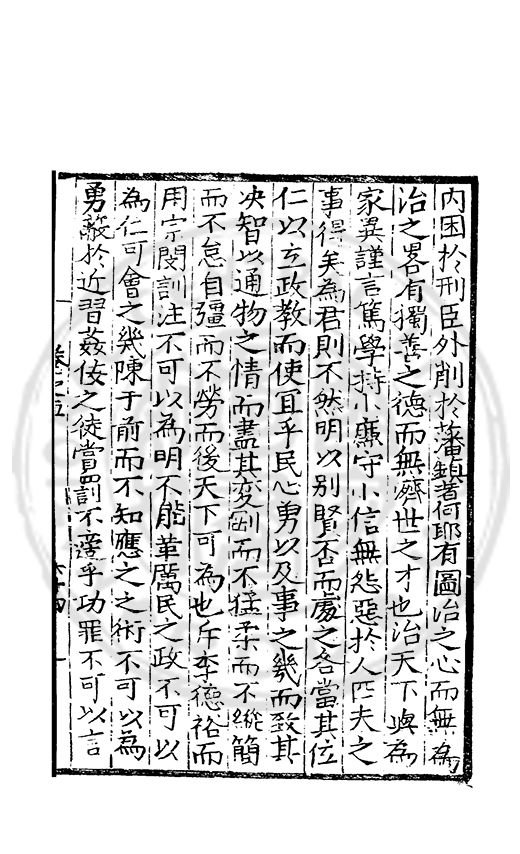 内困於刑臣外削於藩鎮者何耶有圖治之心而無為
治之畧有獨善之德而無濟世之才也治天下與為
家異謹言篤學持小㢘守小信無怨惡於人匹夫之
事得矣為君則不然明以别賢否而處之各當其位
仁以立政教而使宜乎民心勇以及事之幾而致其
决智以通物之情而盡其変剛而不猛柔而不縱簡
而不怠自彊而不勞而後天下可為也斥李德裕而
用宗閔訓注不可以為明不能革厲民之政不可以
為仁可會之幾陳于前而不知應之之術不可以為
勇蔽於近習姦佞之徒賞罰不違乎功罪不可以言
卷之五